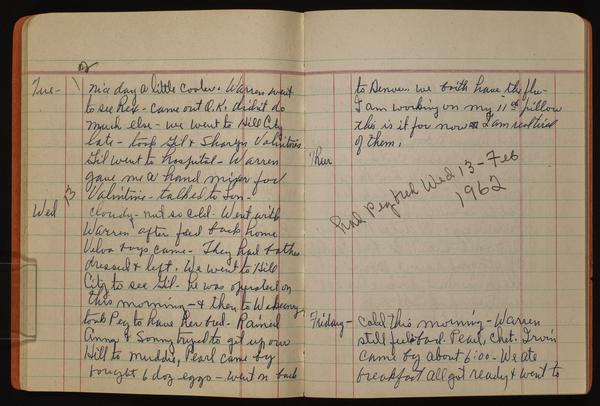 Tue- nice day a little cooler. Warren went
to see Rex - came out O.K. didn't do
much else - we went to Hill City
late - took Gil & Sharyn Valintines.
Gil went to hospital - Warren
gave me a hand mixer for
Valintine - talked to Lon-
13
Wed cloudy - not so cold. Went with
Warren after feed back home
Velva & boys came - They had bathes
dressed & left. We went to Hill
City to see Gil - he was operated on
this morning - & then to
took Peg to have her bred. Rained
Anna & Sonny tryed to get up our
Hill to muddy, Pearl came by
bought 6 doz eggs - went on back
to Denver. we both have the flu-
I am working on my 11th pillow
this is it for now I am real tired
of them.
Thur
had Peg bred Wed 13 - Feb
1962
Friday- Cold this morning - Warren
still feels bad. Pearl, Chet. Irvin
came by about 6:00 - We ate
breakfast all got ready & went to